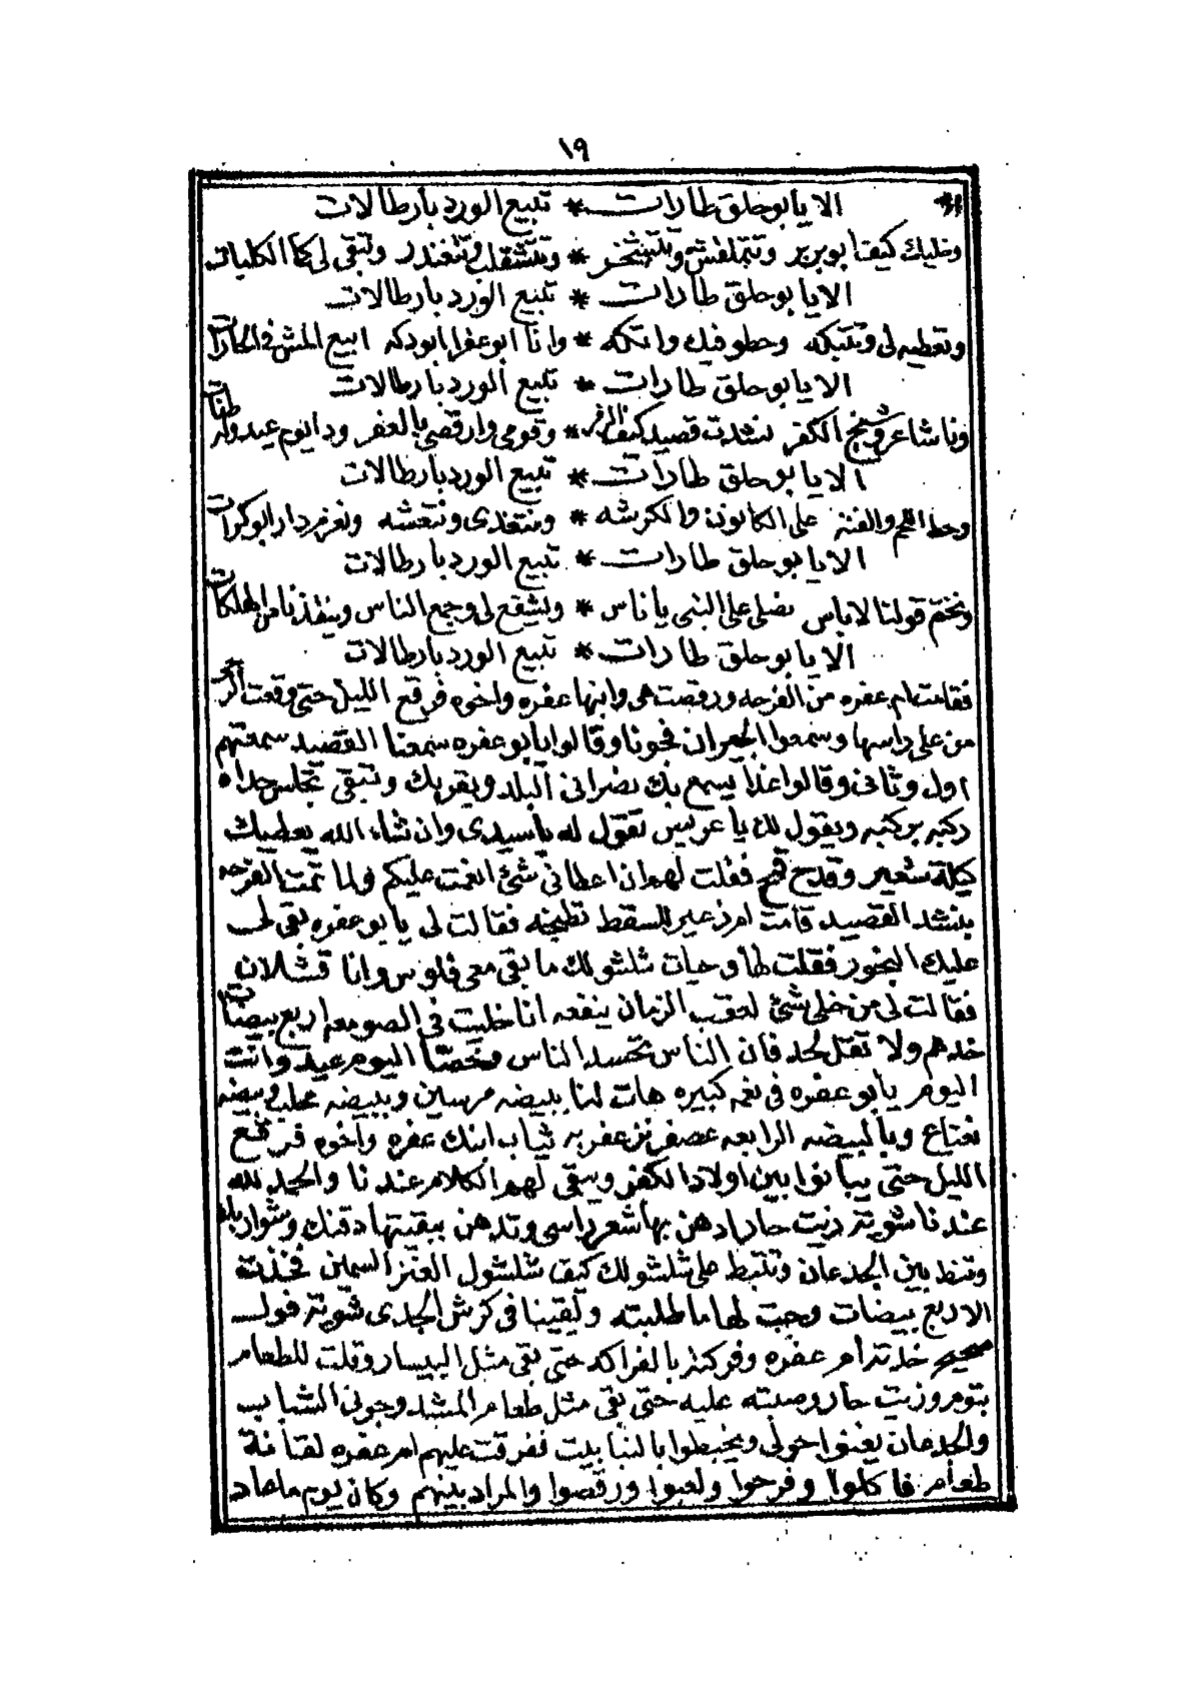 ١٩
الايابوحلق طارات * تبيع الورد بارطالات
وخليك كيف ابوبربر وتتملفش * وتتشقلب وتتغندر وتبقى لى كما الكلبات
الايابوحلق طارات * تبيع الورد بارطالات
وتعطيه لى وتتبكه وحطو فيك واتكه * وانا ابوعفرا ابودكه ابيع المش فى الحارات
الايابوحلق طارات * تبيع الورد بارطالات
ونا شاعر وشيخ الكفر نشدت قصيد كيف الزفر * وقومى وارقصى بالعفر ودايوم عيد
الايابوحلق طارات * تبيع الورد بارطالات
وحط اللحم والفتة على الكانون والكرشه * ونتغدى ونتعشه ونعزم دار ابوكرات
الايابوحلق طارات * تبيع الورد بارطالات
ونختم قولنا لاباس نصلى على النبى ياناس * ويشفع لى وجمع الناس وينقذنا من الهلكات
الايابوحلق طارات * تبيع الورد بارطالات
فقامت ام عفره من الفرحه ورقصت هى وابنها عفره واخوه قرقع الليل حتى وقعت
من على راسها وسمعوا الجيران فجونا وقالوا يابو عفره سمعنا القصيد سمعتهم
اول وثانى وقالوا غدا يسمع بك نصرانى البلد ويقربك وتبقى تجلس حداه
ركبه بركبه ويقول لك يا عريس تقول له ياسيدى وان شاء الله يعطيك
كيلة شعير وقدح قمح فقلت لهم ان اعطانى شئ انعمت عليكم ولما تمت الفرحه
بنشد القصيد قامت ام زعير للسقط تطبخه فقالت لى يا بو عفره بقى لى
عليك البخور فقلت لها وحيات شلشولك ما بقى معى فلوس وانا قشلان
فقالت لى من خلى شئ لعقب الزمان ينفعه انا خليت فى الصومعه اربع بيضات
خدهم ولا تقل لحد فان الناس تحسد الناس وخصتا اليوم عيد وانت
اليوم يابو عفره فى نعمه كبيره هات لنا ببيضه مرسين وببيضه محلب وببيضه
نعناع وبالبيضه الرابعه عصفر نزعفر به ثياب ابنك عفره واخوه قرقع
الليل حتى يبانوا بين اولاد الكفر ويبقى لهم الكلام عندنا والحمد لله
عندنا شوية زيت حار ادهن بها شعر راسى وتدهن ببقيتها دقنك وشواربك
وتنط بين الجدعان وتتبط على شلشولك كيف شلشول العنز السمين فخذت
الاربع بيضات وجبت لها ما طلبته ولقينا فى كرش الجدى شوية فول
صحيح خدته ام عفره وفركته بالفراكه حتى بقى مثل البيسار وقلت للطعام
بتوم وزيت حار وصبته عليه حتى بقى مثل طعام المشد وجونى الشباب
والجدعان يغنوا حولى ويخبطوا بالنبابيت ففرقت عليهم ام عفره لقتا نة
طعام فاكلوا وفرحوا ولعبوا ورقصوا والمراد بينهم وكان يوم ما صاد